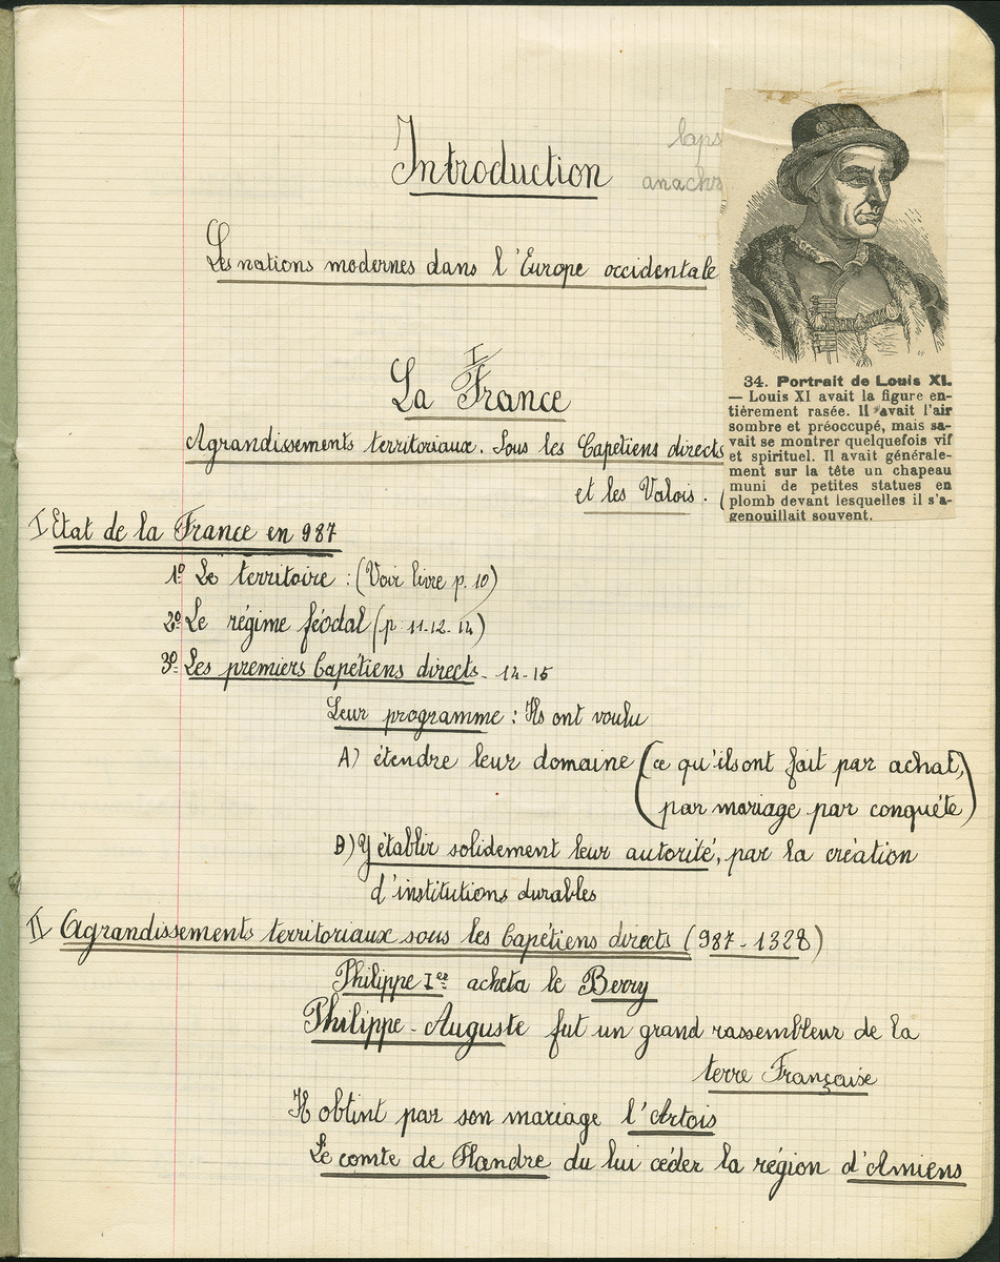 Introduction
laps
anachr
Les nations modernes dans l'Europe occidentale
I
La France
Agrandissements territoriaux. Sous les Capétiens directs
et les Valois. (
34. Portrait de Louis XI.
— Louis XI avait la figure en-
tièrement rasée. Il avait l'air
sombre et préoccupé, mais sa-
vait se montrer quelquefois vif
et spirituel. Il avait générale-
ment sur la tête un chapeau
muni de petites statues en
plomb devant lesquelles il s'a-
genouillait souvent.
I Etat de la France en 987
1º Le territoire : (Voir livre p. 10)
2º Le régime féodal (p 11-12-14)
3º Les premiers Capétiens directs - 14-15
Leur programme : Ils ont voulu
A) étendre leur domaine (ce qu'ils ont fait par achat,
par mariage par conquête)
B) Y établir solidement leur autorité, par la création
d'institutions durables
II Agrandissements territoriaux sous les Capétiens directs (987-1328)
Philippe Ier acheta le Berry
Philippe-Auguste fut un grand rassembleur de la
terre Française
Il obtint par son mariage l'Artois
Le comte de Flandre du lui céder la région d'Amiens